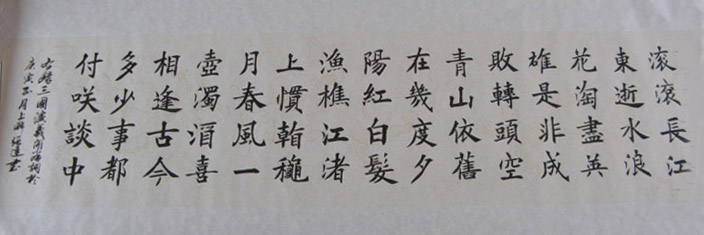 滾滾長江
東逝水浪
花淘盡英
雄是非成
敗轉頭空
青山依舊
在幾度夕
陽紅白髮
漁樵江渚
上慣龝
月春風一
壺濁酒喜
相逢古今
多少事都
付咲談中
右錄三國演義開篇詞於
庚寅正月上澣書